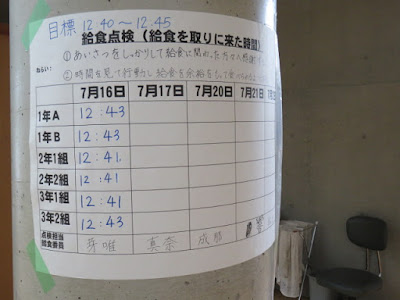 目標 12:40〜12:45
給食点検(給食を取りに来た時間)
ねらい:
①あいさつをしっかりして給食に関わった方々へ感謝
②時間を見て行動し給食を余裕をもって
7月16日 7月17日 7月20日 7月21日
1年A 12:43
1年B 12:43
2年1組 12:41
2年2組 12:41
3年1組 12:41
3年2組 12:43
点検担当
給食委員 芽唯 真奈